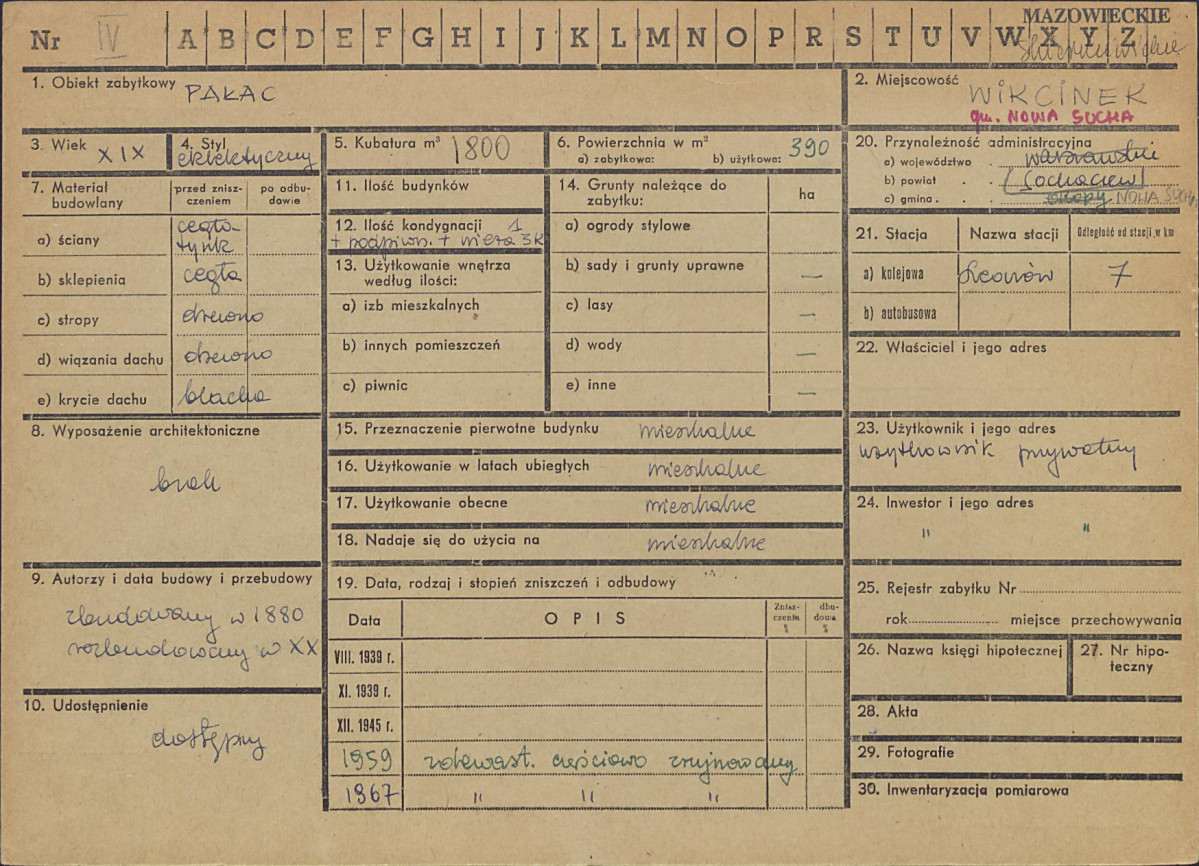 MAZOWIECKIE
Nr IV A B C D E F G H I J K L M N O P R S T U V W X Y Z
1. Obiekt zabytkowy PAŁAC
2. Miejscowość
WIKCINEK
gm. NOWA SUCHA
3. Wiek XIX
4. Styl eklektyczny
5. Kubatura m³ 1800
6. Powierzchnia w m²
a) zabytkowa: b) użytkowa: 390
7. Materiał budowlany
przed zniszczeniem
po odbudowie
a) ściany cegła-tynk
b) sklepienia cegła
c) stropy drewno
d) wiązania dachu drewno
e) krycie dachu blacha
8. Wyposażenie architektoniczne
brak
9. Autorzy i data budowy i przebudowy
zbudowany w 1880
rozbudowany w XX
10. Udostępnienie
dostępny
11. Ilość budynków
12. Ilość kondygnacji 1
+ podpiwn. +
13. Użytkowanie wnętrza
według ilości:
a) izb mieszkalnych
b) innych pomieszczeń
c) piwnic
14. Grunty należące do
zabytku:
ha
a) ogrody stylowe
b) sady i grunty uprawne —
c) lasy —
d) wody —
e) inne —
15. Przeznaczenie pierwotne budynku mieszkalne
16. Użytkowanie w latach ubiegłych mieszkalne
17. Użytkowanie obecne mieszkalne
18. Nadaje się do użycia na mieszkalne
19. Data, rodzaj i stopień zniszczeń i odbudowy
Data
OPIS
Zniszczenia %
dbudowa %
VIII. 1939 r.
XI. 1939 r.
XII. 1945 r.
1959 zdewast. częściowo zrujnowany
1967 " " "
20. Przynależność administracyjna
a) województwo . warszawskie
b) powiat . . Sochaczew
c) gmina . . NOWA SUCHA
21. Stacja
Nazwa stacji
Odległość od stacji w km
a) kolejowa Leonów 7
b) autobusowa
22. Właściciel i jego adres
23. Użytkownik i jego adres
użytkownik prywatny
24. Inwestor i jego adres
" "
25. Rejestr zabytku Nr
rok miejsce przechowywania
26. Nazwa księgi hipotecznej
27. Nr hipoteczny
28. Akta
29. Fotografie
30. Inwentaryzacja pomiarowa